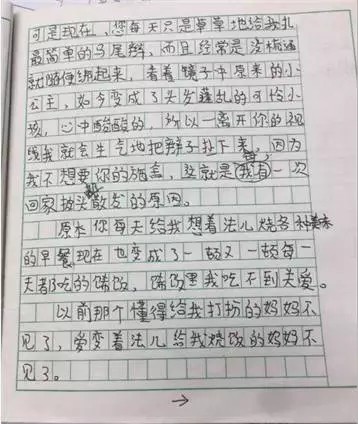 可是现在,您每天只是草草地给我扎
最简单的马尾辫,而且经常是没梳通
就随便绑起来,看着镜子中原来的小
公主,如今变成了头发蓬乱的可怜小
孩,心中酸酸的,所以一离开你的视
线我就会生气地把辫子扯下来,因为
我不想要你的施舍,这就是我每一次
回家披头散发的原因。
原本您每天给我想着法儿烧各种美味
的早餐现在也变成了一顿又一顿每一
天都吃的稀饭,稀饭里我吃不到关爱。
以前那个懂得给我打扮的妈妈不
见了,爱变着法儿给我烧饭的妈妈不
见了。
→